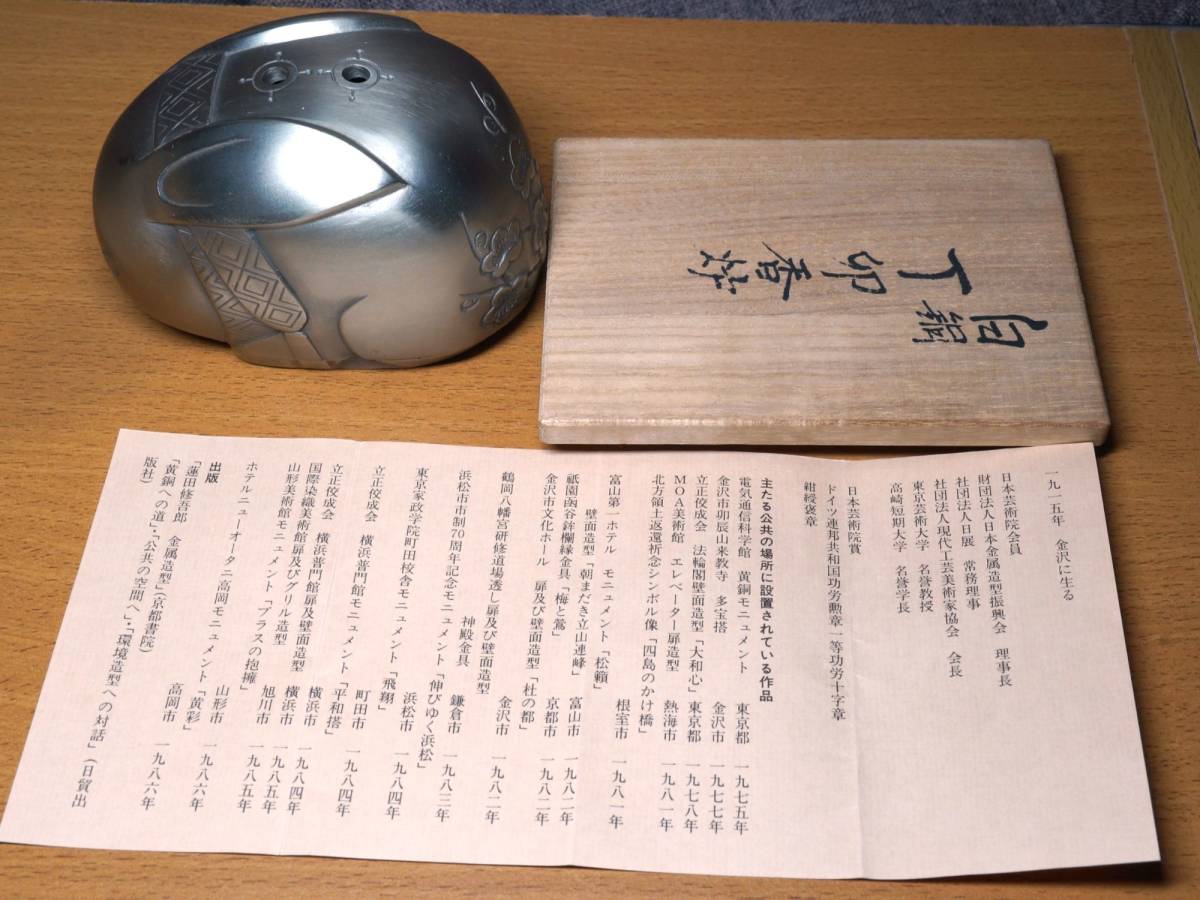 白銅
丁卯香炉
一九一五年　金沢に生る
日本芸術院会員
財団法人日本金属造型振興会　理事長
社団法人日展　常務理事
社団法人現代工芸美術家協会　会長
東京芸術大学　名誉教授
高崎短期大学　名誉学長
日本芸術院賞
ドイツ連邦共和国功労勲章一等功労十字章
紺綬褒章
主たる公共の場所に設置されている作品
電気通信科学館　黄銅モニュメント　東京都　一九七五年
金沢市卯辰山来教寺　多宝塔　金沢市　一九七七年
立正佼成会　法輪閣壁面造型「大和心」　東京都　一九七八年
MOA美術館　エレベーター扉造型　熱海市　一九八一年
北方領土返還祈念シンボル像「四島のかけ橋」
根室市　一九八一年
富山第一ホテル　モニュメント「松籟」
壁面造型「朝まだき立山連峰」　富山市　一九八二年
祇園函谷鉾欄縁金具「梅と鶯」　京都市　一九八二年
金沢市文化ホール　扉及び壁面造型「杜の都」
金沢市　一九八二年
鶴岡八幡宮研修道場透し扉及び壁面造型
神殿金具　鎌倉市　一九八三年
浜松市市制70周年記念モニュメント「伸びゆく浜松」
浜松市　一九八四年
東京家政学院町田校舎モニュメント「飛翔」
町田市　一九八四年
立正佼成会　横浜普門館モニュメント「平和塔」
横浜市　一九八四年
立正佼成会　横浜普門館扉及び壁面造型
横浜市　一九八四年
国際染織美術館扉及びグリル造型　旭川市　一九八五年
山形美術館モニュメント「ブラスの抱擁」
山形市　一九八五年
ホテルニューオータニ高岡モニュメント「黄彩」
高岡市　一九八六年
出版
「蓮田修吾郎　金属造型」（京都書院）
「黄銅への道」・「公共の空間へ」・「環境造型への対話」（日貿出
版社）